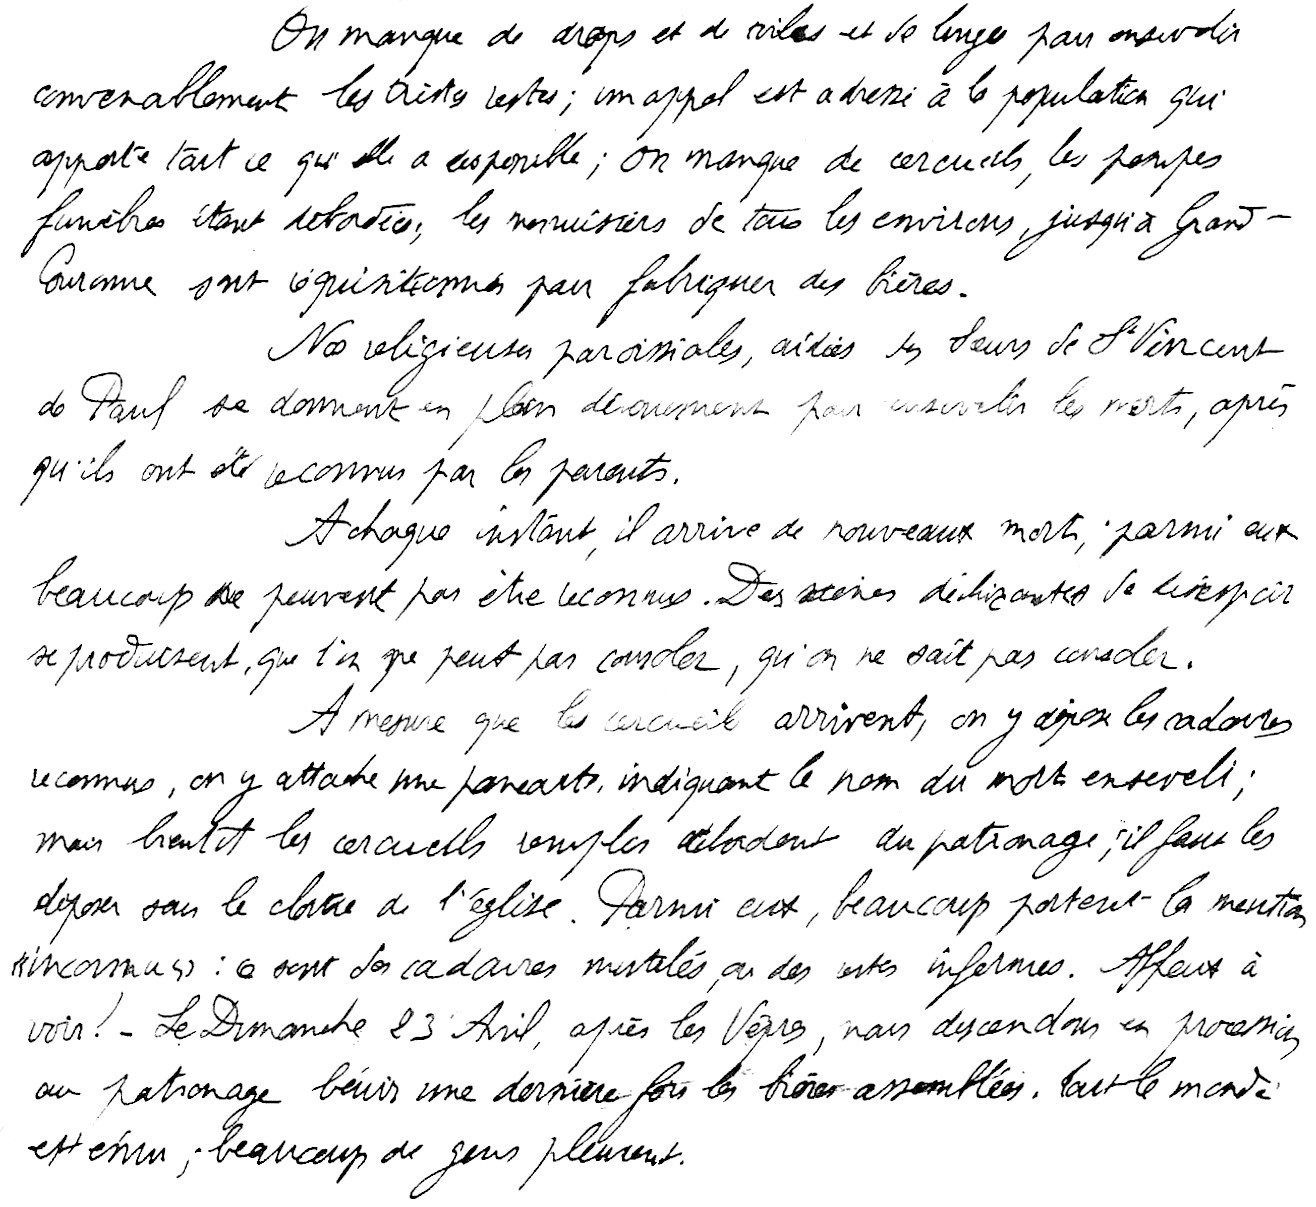 On manque de draps et de toiles et de linges pour ensevelir
convenablement les tristes restes ; un appel est adressé à la population qui
apporte tout ce qu'elle a disponible ; on manque de cercueils, les pompes
funèbres étant débordées, les menuisiers de tous les environs, jusqu'à Grand-
Couronne sont réquisitionnés pour fabriquer des bières.
Nos religieuses paroissiales, aidées des Sœurs de St Vincent
de Paul se donnent en plein dévouement pour ensevelir les morts, après
qu'ils ont été reconnus par les parents.
A chaque instant, il arrive de nouveaux morts ; parmi eux
beaucoup ne peuvent pas être reconnus. Des scènes déchirantes de désespoir
se produisent, que l'on ne peut pas consoler, qu'on ne sait pas consoler.
A mesure que les cercueils arrivent, on y dépose les cadavres
reconnus, on y attache une pancarte indiquant le nom du mort enseveli ;
mais bientôt les cercueils remplis débordent du patronage ; il faut les
déposer sous le cloître de l'église. Parmi eux, beaucoup portent la mention
"inconnus" : ce sont des cadavres mutilés, ou des restes informes. Affreux à
voir ! - Le Dimanche 23 Avril, après les Vêpres, nous descendons en procession
au patronage bénir une dernière fois les bières assemblées. Tout le monde
est ému ; beaucoup de gens pleurent.